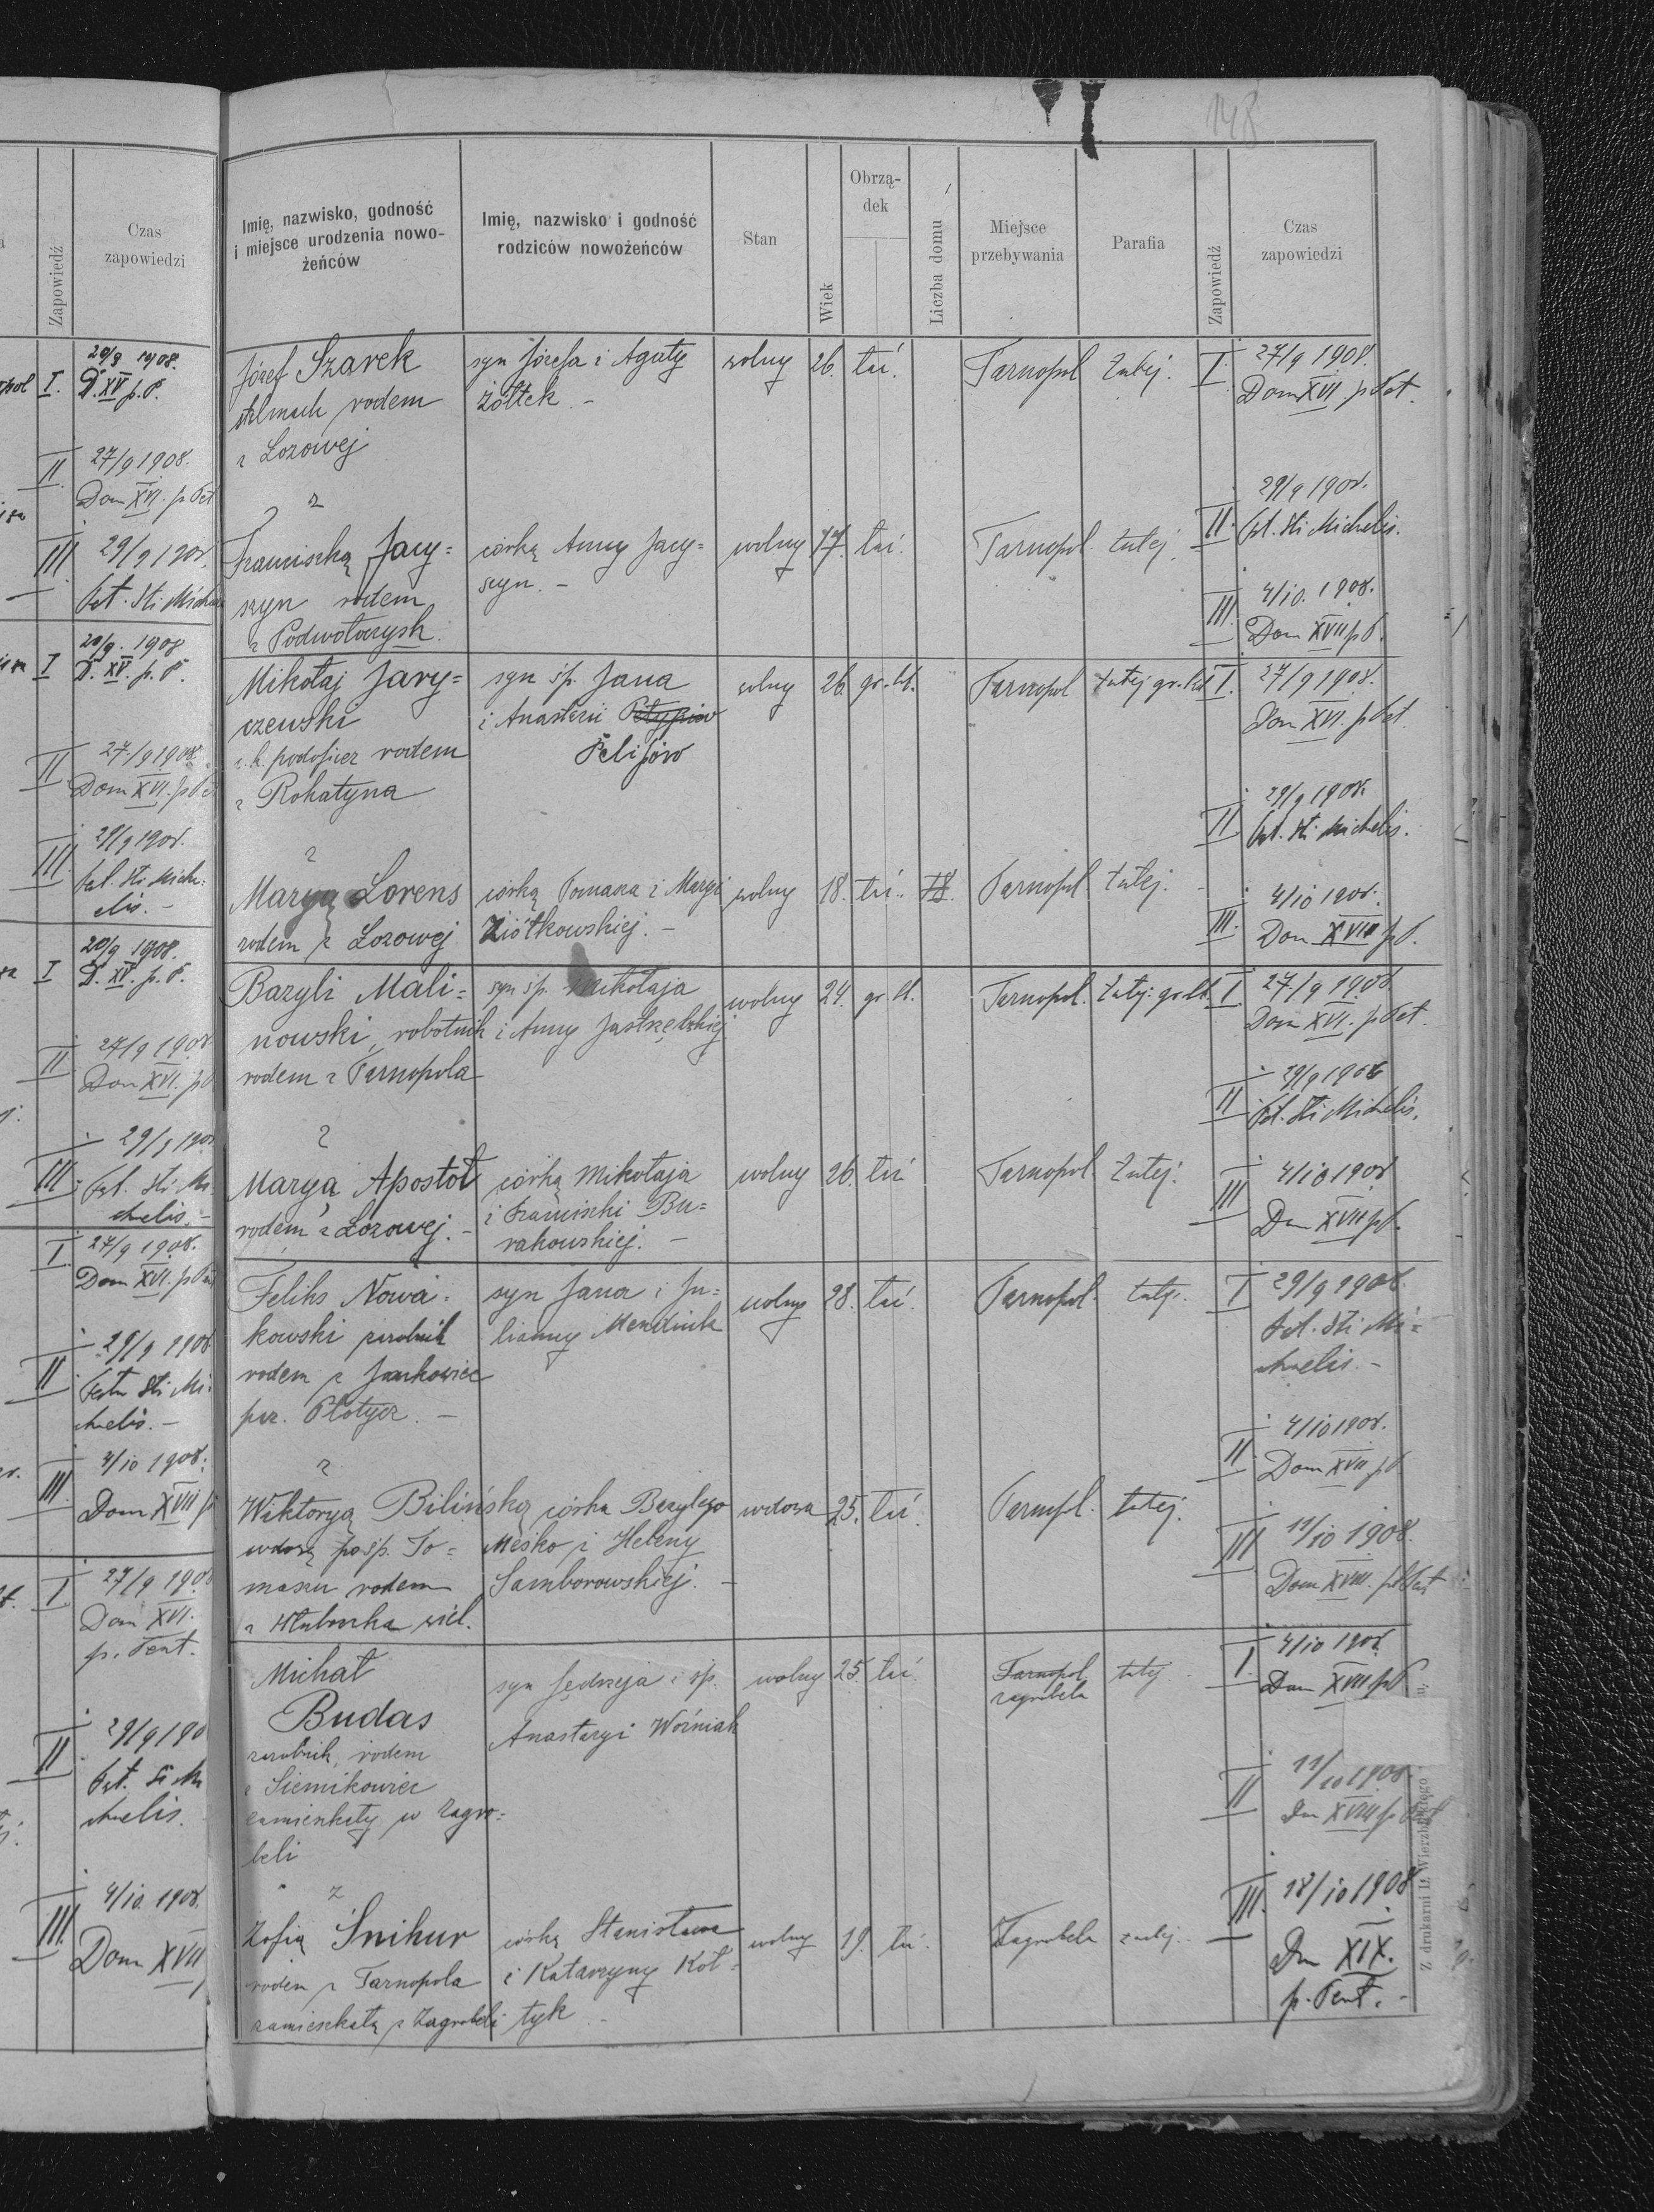 148
Zapowiedź
Czas
zapowiedzi
I.
20/9 1908.
D. XV. p. P.
II
27/9 1908.
Dom XVI. p. Pet
III
29/9 1908.
Fst. Sti Mich
I
20/9. 1908
D. XV. p. P.
II
27/9 1908
Dom XVI. p. P
III
29/9 1908.
Fst. Sti Micha-
elis. -
I
20/9 1908.
D. XV. p. P.
II
27/9 1908
Dom XVI. p
III
29/9 190
Fst. Sti Mi-
chaelis. -
I
27/9 1908.
Dom XVI. p
II
29/9 1908
Sti Mi-
chaelis. -
III
4/10 1908.
Dom XVII p
I
27/9 190
Dom XVI.
p. Pent.
II
29/9 190
Fst. S Mi
chaelis.
III.
4/10. 1908.
Dom XVII
Imię, nazwisko, godność
i miejsce urodzenia nowo-
żeńców
Imię, nazwisko i godność
rodziców nowożeńców
Stan
Wiek
Obrzą-
dek
Liczba domu
Miejsce
przebywania
Parafia
Zapowiedź
Czas
zapowiedzi
Józef Szarek
stelmach rodem
z Łozowej
syn Józefa i Agaty
Żółtek. -
wolny 26. łać. Tarnopol tutej. I.
27/9 1908.
Dom XVI. p Pet.
z
II.
29/9 1908.
Fst. Sti Michelis.
Franciszką Jacy=
szyn rodem
z Podwołoczysk.
córką Anny Jacy=
szyn. -
wolny 17. łać. Tarnopol. tutej.
III.
4/10. 1908.
Dom XVII p P.
Mikołaj Jary=
czewski
c. k. podoficer rodem
z Rohatyna
syn śp. Jana
i Anastazii
Pelifów
wolny 26 gr. kt. Tarnopol tutej gr. kt I.
27/9 1908.
Dom XVI. p Pet.
II
29/9 1908.
Fst. Sti Michelis.
z
Maryą Lorens
rodem z Łozowej
córką Tomasza i Maryi
Ziółkowskiej. -
wolny 18. łać. 18. Tarnopol. tutej.
III.
4/10 1908.
Dom XVII p P.
Bazyli Mali=
nowski, robotnik
rodem z Tarnopola
syn śp. Mikołaja
i Anny Jastrzębskiej
wolny 24. gr. kt. Tarnopol. tutej. gr. kt. I.
27/9 1908.
Dom XVI. p Pet.
II
29/9 1908
Fst. Sti Michelis.
z
Maryą Apostoł
rodem z Łozowej. -
córką Mikołaja
i Franciszki Bu=
rakowskiej. -
wolny 26. łać Tarnopol. tutej.
III
4/10 1908
Dom XVII p P.
Feliks Nowa=
kowski zarobnik
rodem z Jankowiec
par. Płotycz. -
syn Jana i Ju=
lianny Mendiuk
wolny 28. łać. Tarnopol. tutej. I
29/9 1908.
Fst. Sti Mi=
chaelis. -
II
4/10 1908.
Dom XVII p P
z
Wiktoryą Bilińską
wdową po śp. To=
maszu rodem
z Hłuboczka wiel.
córką Bazylego
Meśko i Heleny
Samborowskiej. -
wdowa 25. łać. Tarnopol. tutej.
III
11/10 1908.
Dom XVIII. p Pent
Michał
Budas
zarobnik, rodem
z Siemikowiec
zamieszkały w Zagro=
beli
syn Jędrzeja i śp.
Anastazyi Woźniak
wolny 25. łać. Tarnopol
zagrobela
tutej. I.
4/10 1908
Dom XVII p P
II
11/10 1908.
Dom XVIII p Pent
z
Zofią Śnihur
rodem z Tarnopola
zamieszkałą z Zagrobeli
córką Stanisława
i Katarzyny Koł=
tyk
wolny 19. łać. Zagrobela tutej. III.
18/10 1908
Dom XIX.
p. Pent. -
Z drukarni L. Wierzbickiego